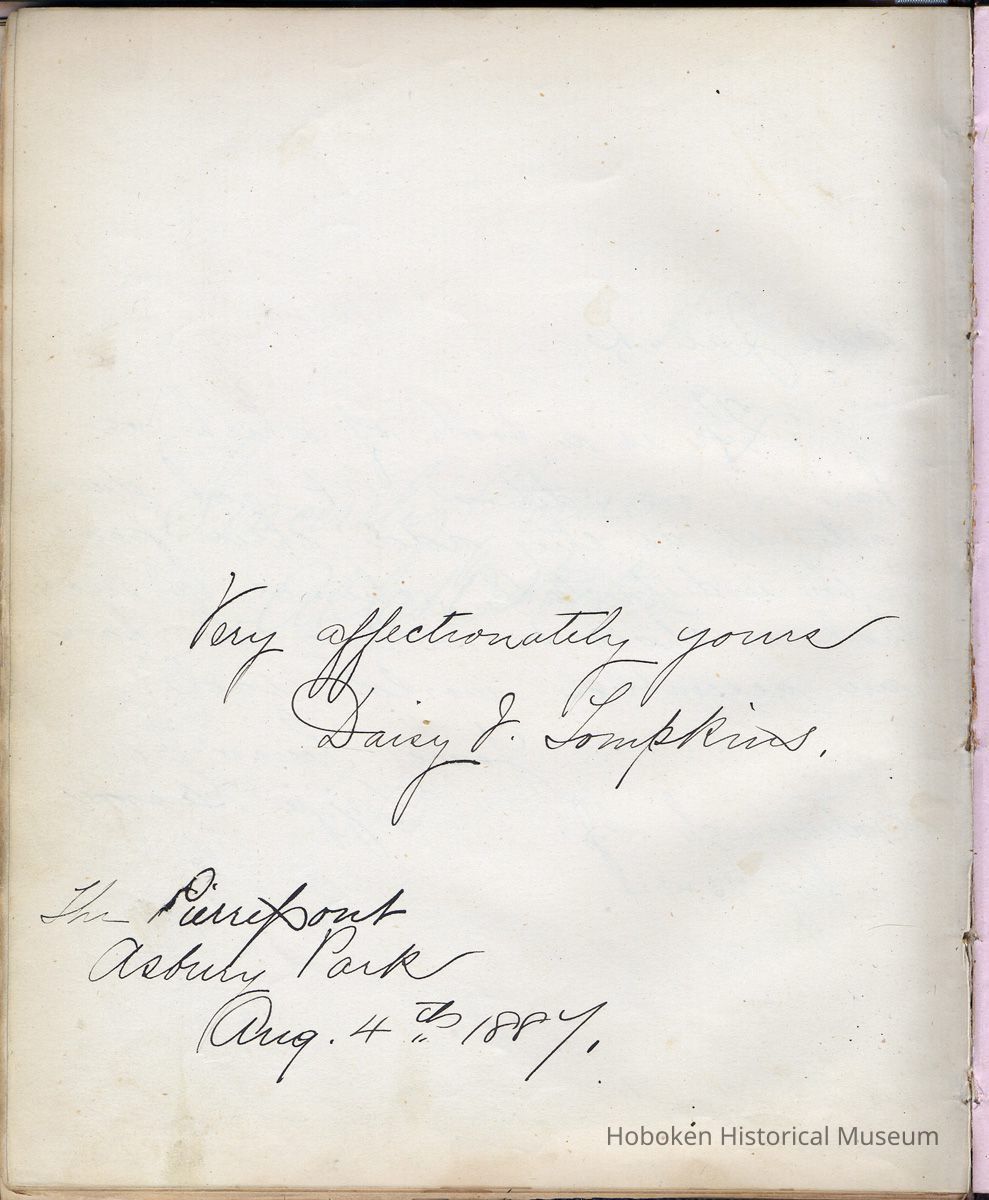 Very affectionately yours
Daisy J. Tompkins.
The Pierrepont
Asbury Park
Aug. 4th 1887.
Hoboken Historical Museum